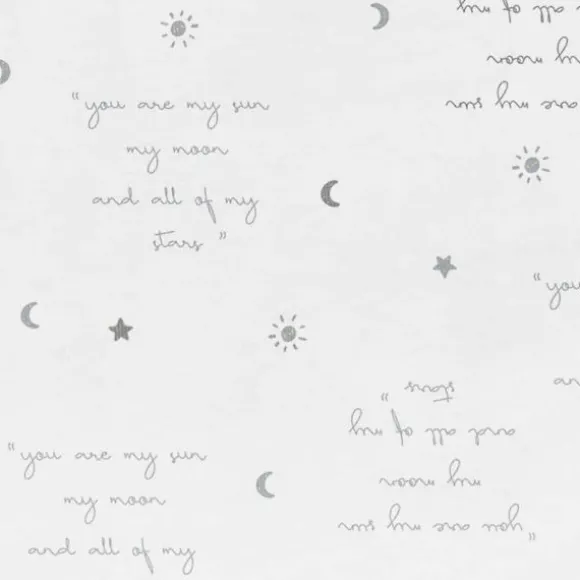 and all of my
my moon
you are my sun
"you are my sun
my moon
and all of my
stars"
"you
an
stars"
and all of my
my moon
"you are my sun
"you are my sun
my moon
and all of my